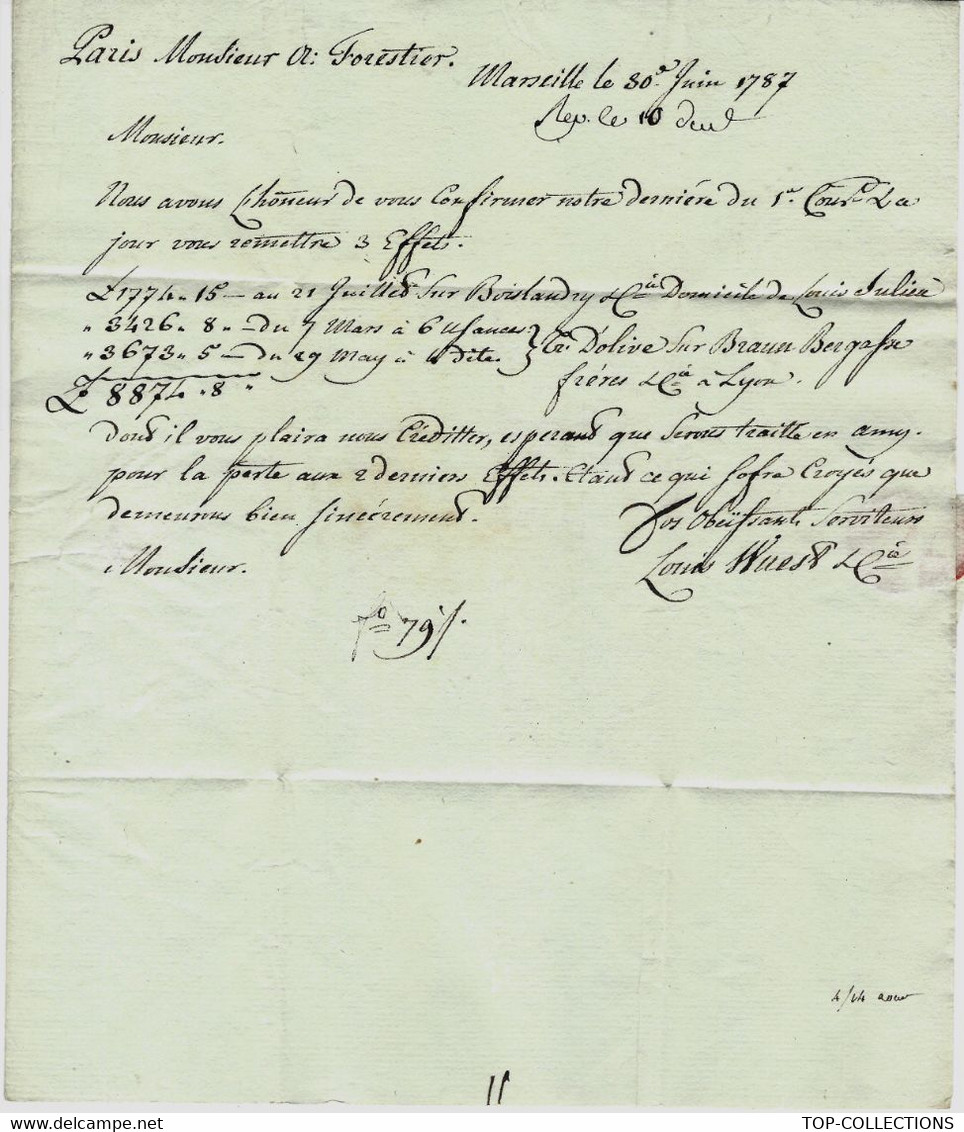 Paris Monsieur A: Forestier.
Marseille le 30e Juin 1787
Rep. le 10 dud
Monsieur.
Nous avons Lhoneur de vous Confirmer notre derniére du 1er Courst Le
jour vous remettre 3 Effets.
£ 1774 " 15 — au 21 Juilliet Sur Boislandry &Cie Domicile de Louis Julien
" 3426 " 8 " — du 7 Mars à 6 Usances
" 3673 " 5 — du 29 May à 4 dite. } tre. D'olive Sur Braun Bergasse
£ 8874 " 8 " fréres &Cie à Lyon.
dont il vous plaira nous Créditter, esperant que Serons traitté en amy.
pour la perte aux 2 derniers Effets. Etant ce qui sofre Croyés que
demeurons bien sincérement. Vos Obeïssants Serviteurs
Monsieur. Louis Wuest &Cie
fo 79
4/14 aout
TOP-COLLECTIONS